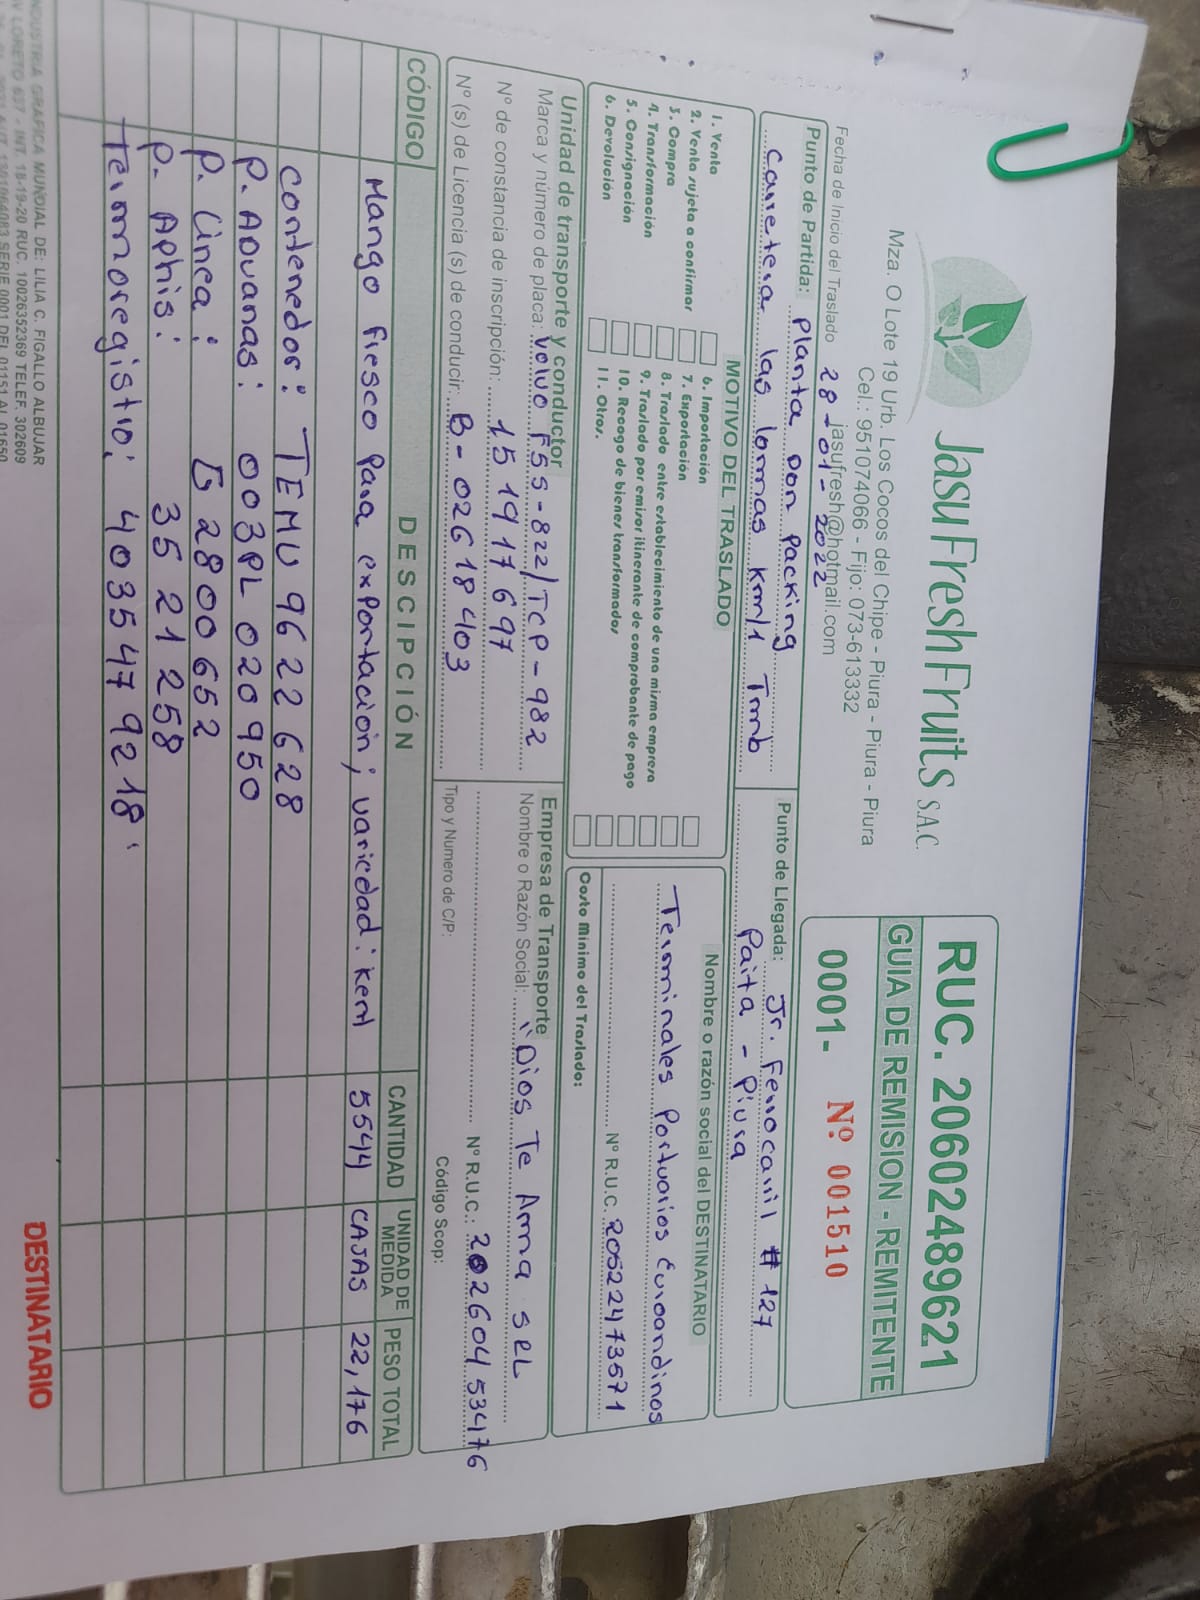 JasuFreshFruits S.A.C.
Mza. O Lote 19 Urb. Los Cocos del Chipe - Piura - Piura - Piura
Cel.: 951074066 - Fijo: 073-613332
jasufresh@hotmail.com
RUC. 20602489621
GUIA DE REMISION - REMITENTE
0001- Nº 001510
Fecha de Inicio del Traslado 28-01-2022
Punto de Partida: Planta Don Packing
Carretera las lomas Km/1 Tmb
Punto de Llegada: Jr. Ferrocarril # 127
Paita - Piura
MOTIVO DEL TRASLADO
1. Venta
2. Venta sujeta a confirmar
3. Compra
4. Transformación
5. Consignación
6. Devolución
6. Importación
7. Exportación
8. Traslado entre establecimiento de una misma empresa
9. Traslado por emisor itinerante de comprobante de pago
10. Recogo de bienes transformados
11. Otros.
Nombre o razón social del DESTINATARIO
Terminales Portuarios Euroandinos
Nº R.U.C. 20522473571
Costo Minimo del Traslado:
Unidad de transporte y conductor
Marca y número de placa: Volvo F5S-822/TCP-982
Nº de constancia de inscripción: 151917697
Nº (s) de Licencia (s) de conducir: B-02618403
Empresa de Transporte
Nombre o Razón Social: "Dios Te Ama SRL
Nº R.U.C.: 20260453476
Tipo y Numero de C/P: Código Scop:
CÓDIGO DESCIPCIÓN CANTIDAD UNIDAD DE MEDIDA PESO TOTAL
Mango fresco para exportación; variedad: Kent 5544 CAJAS 22,176
Contenedor: TEMU 9622628
P. ADUANAS: 003PL020950
P. Linea: 2800652
P. Aphis: 3521258
Termoregistro: 4035479218
INDUSTRIA GRAFICA MUNDIAL DE: LILIA C. FIGALLO ALBUJAR
AV LORETO 637 - INT. 18-19-20 RUC. 10026352369 TELEF. 302609
SERIE 0001 DEL 01151 AL 01650
DESTINATARIO